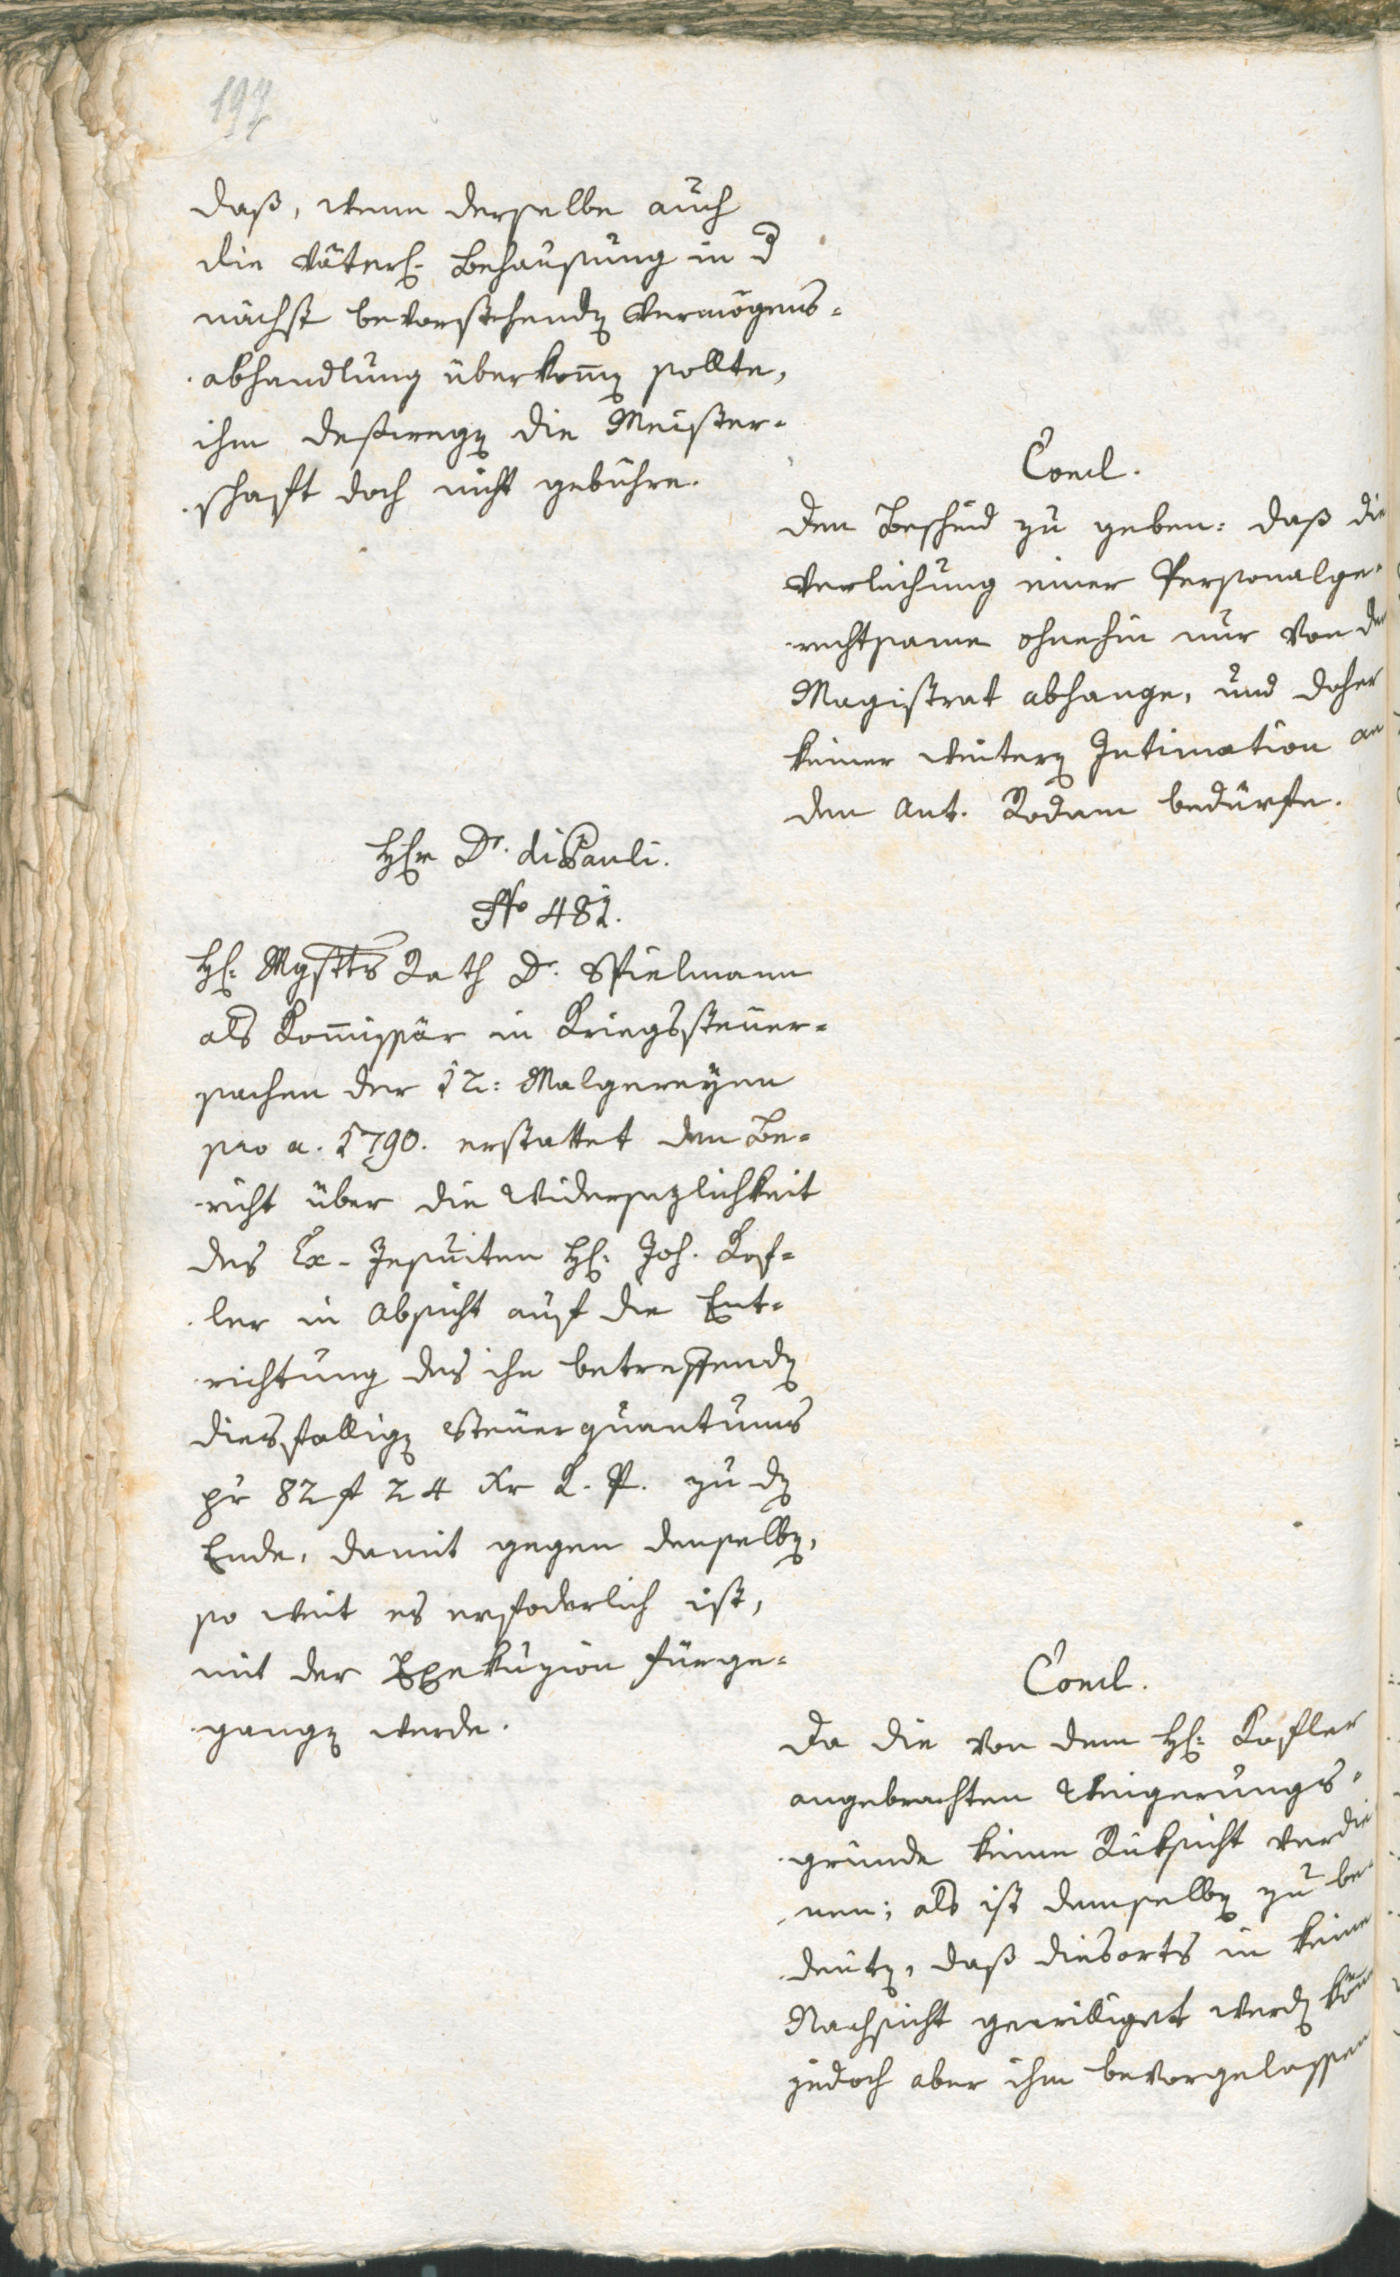 197
daß, wenn derselbe auch
die väterl. Behausung in d
nächst bevorstehenden Vermögens=
abhandlung überkom̅en sollte,
ihm deßwegen die Meister=
schaft doch nicht gebühre.
Concl.
dem Bescheid zu geben: daß die
Verleihung einer Personalge=
rechtsame ohnehin nur von dem
Magistrat abhange, und daher
keiner weitern Intimation an
den Ant. Rodam bedürfe.
Hrr Dr. diPauli.
No 481.
H: Mgstts Rath Dr. Spielmann
als Kom̅issär in Kriegssteuer=
sachen der 12: Malgereyen
pro a. 1790. erstattet den Be=
richt über die Widersezlichkeit
des Ex-Jesuiten H: Joh. Kof=
ler in Absicht auf die Ent=
richtung des ihn betreffenden
diesfalligen Steuerquantums
pr 82 f 24 xr K. P. zu dem
Ende, damit gegen denselben,
so weit es erfoderlich ist,
mit der Exekuzion fürge=
gangen werde.
Concl.
Da die von dem H: Kofler
angebrachten Weigerungs=
gründe keine Rüksicht verdie
nen; als ist demselben zu be=
deuten, daß diesorts in keine
Nachsicht gewilliget werden kön̅e
jedoch aber ihm bevorgelassen